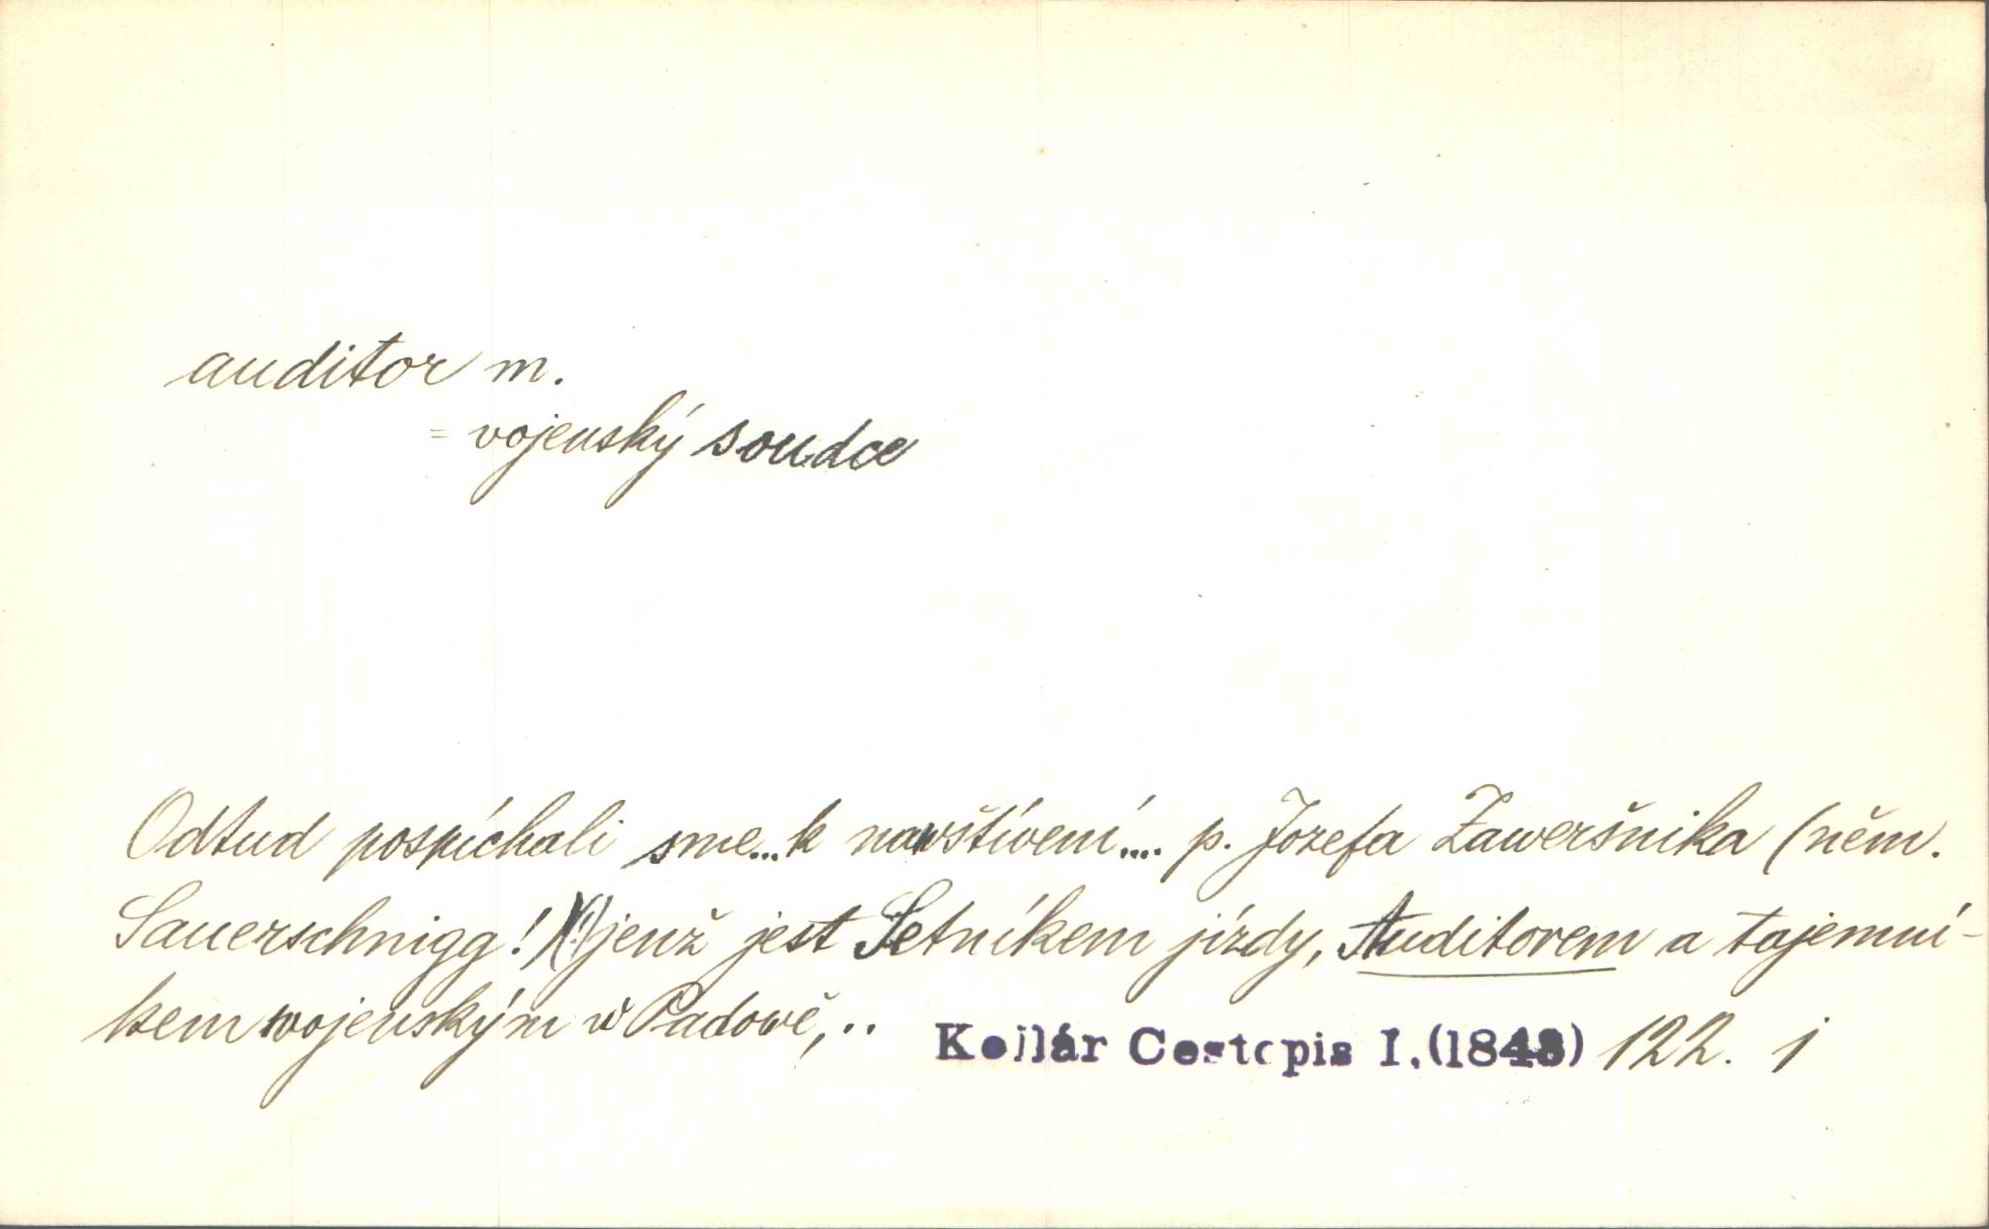 auditor m.
= vojenský soudce
Odtud pospíchali sme... k nawštívení.... p. Jozefa Zaweršnika (něm.
Sauerschnigg!)(!) jenž jest Setníkem jízdy, Auditorem a tajemní-
kem wojenským w Padowě,..
Kollár Cestopis I.(1843) 122. j